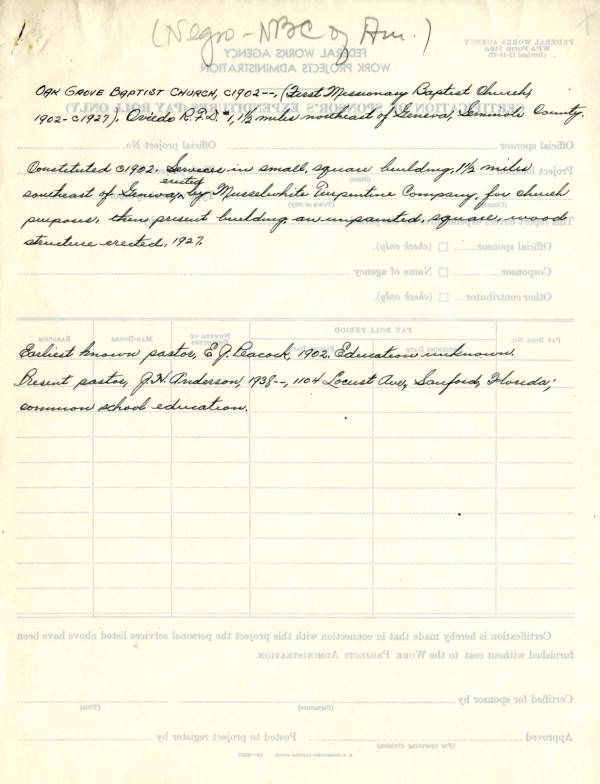 (Negro - NBC of Am.)
OAK GROVE BAPTIST CHURCH, C1902--, (First Missionary Baptist Church,
1902-C1927), Oviedo R.F.D. #1, 1½ miles northeast of Geneva, Seminole County.
Constituted C1902. Services in small, square building, 1½ miles
erected
southeast of Geneva, by Musselwhite Turpentine Company, for church
purposes, then present building, an unpainted, square, wood
structure erected, 1927.
Earliest known pastor, E. J. Peacock, 1902. Education unknown.
Present pastor, J. H. Anderson, 1938--, 1104 Locust Ave, Sanford, Florida;
common school education.
FEDERAL WORKS AGENCY
WPA Form
FEDERAL WORKS AGENCY
WORK PROJECTS ADMINISTRATION
CERTIFICATION OF SPONSOR'S EXPENDITURES (PAY ROLL ONLY)
Official sponsor
Official Project No.
Official sponsor ☐ (check only)
Cosponsor ☐ Name of agency
Other contributor ☐ (check only)
PAY ROLL PERIOD
PAY ROLL NO.
NUMBER OF
MAN-HOURS
EARNINGS
Certification is hereby made that in connection with this project the personal services listed above have been
furnished without cost to the WORK PROJECTS ADMINISTRATION.
Certified for sponsor by
(Signature)
(Title)
Approved
(For operating division)
Posted to project register by